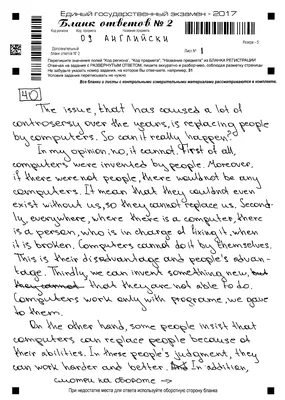 Единый государственный экзамен - 2017
Бланк ответов № 2
Код региона Код предмета Название предмета
09 АНГЛИЙСКИ
Резерв - 5
Дополнительный бланк ответов № 2
Лист № 1
Перепишите значения полей "Код региона", "Код предмета", "Название предмета" из БЛАНКА РЕГИСТРАЦИИ.
Отвечая на задания с РАЗВЕРНУТЫМ ОТВЕТОМ, пишите аккуратно и разборчиво, соблюдая разметку страницы.
Не забудьте указать номер задания, на которое Вы отвечаете, например, 31
Условия задания переписывать не нужно.
Все бланки и листы с контрольными измерительными материалами рассматриваются в комплекте.
40
The issue, that has caused a lot of
controversy over the years, is replacing people
by computers. So can it really happen?
In my opinion, no, it cannot. First of all,
computers were invented by people. Moreover,
if there were not people, there wouldnot be any
computers. It mean that they couldnot even
exist without us, so they cannot replace us. Second-
ly, everywhere, where there is a computer, there
is a person, who is in charge of fixing it, when
it is broken. Computers cannot do it by themselves.
This is their disadvantage and people's advan-
tage. Thirdly, we can invent something new, but
they cannot that they are not able to do.
Computers work only with programe, we gave
to them.
On the other hand, some people insist that
computers can replace people because of
their abilities. In these people's judgment, they
can work harder and better. And In addition,
смотри на обороте →
При недостатке места для ответа используйте оборотную сторону бланка